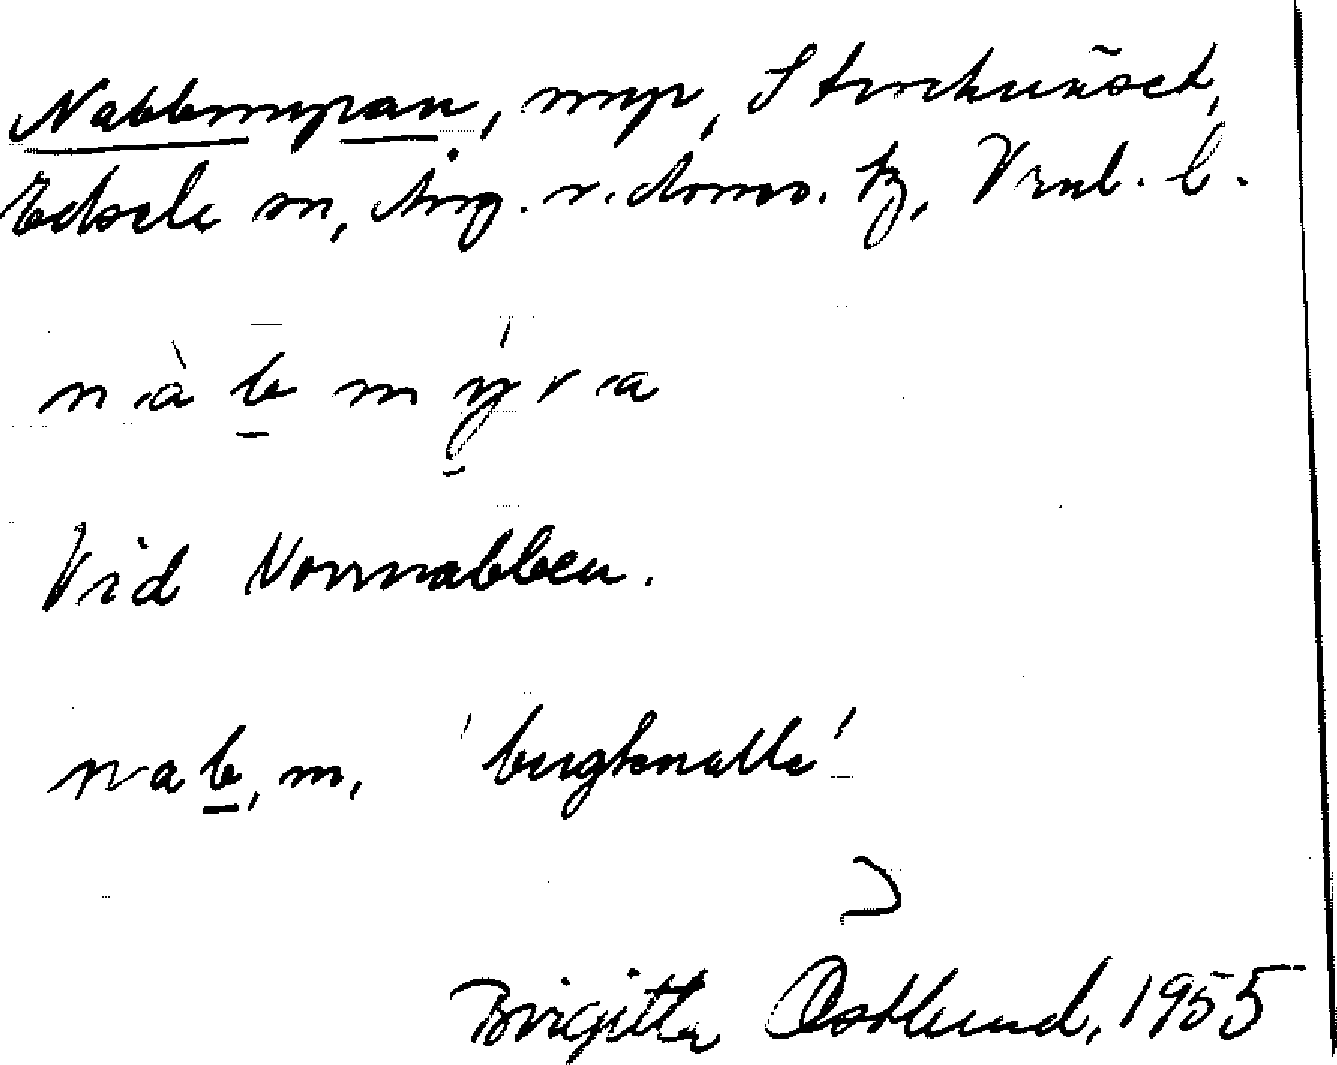 Nabbmyran, myr, Storhuåset,
Edsele sn, Ång. v. doms. tg, Vnl. l.
nàb mýra
Vid Norrnabben.
nab, m, 'bergknalle'
Birgitta Östlund, 1955